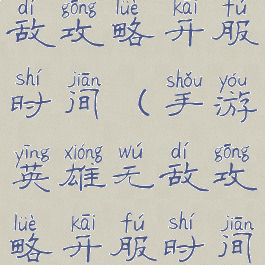 dí gōng lüè kāi fú
敌攻略开服
shí jiān shǒu yóu
时间（手游
yīng xióng wú dí gōng
英雄无敌攻
lüè kāi fú shí jiān
略开服时间